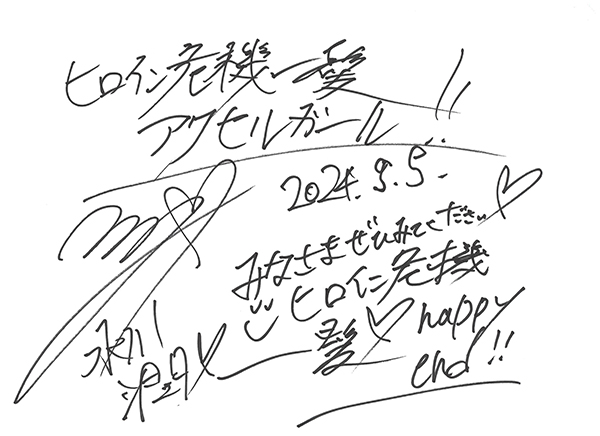 ヒロイン危機一髪!!
アクセルガール
2024.9.5.
みなさまぜひみてください♡
ヒロイン危機
一髪♡ happy
end!!